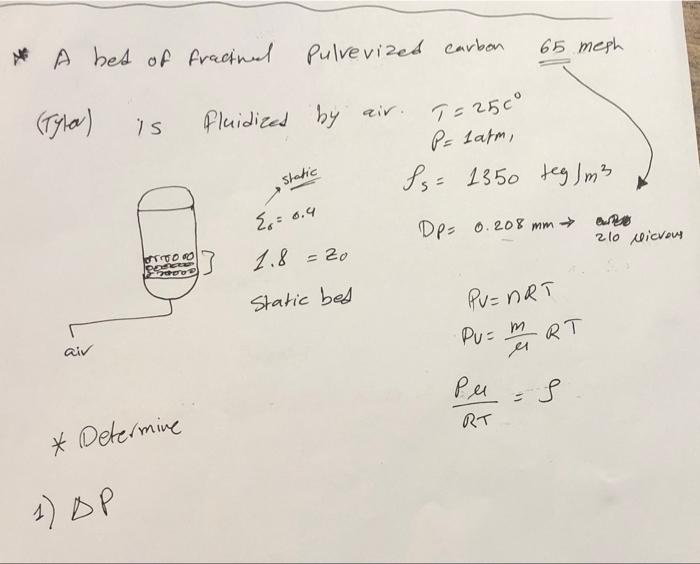 * A bed of fractinel Pulverized carbon 65 mesh
(Tyler) is fluidized by air. T = 25C°
P = 1atm,
static
ρs = 1350 kg/m³
Σ₀ = 0.4
Dp = 0.208 mm → 210 microns
1.8 = Z₀
Static bed
PV = nRT
PV = m/μ RT
Pμ/RT = ρ
air
* Determine
1) ΔP